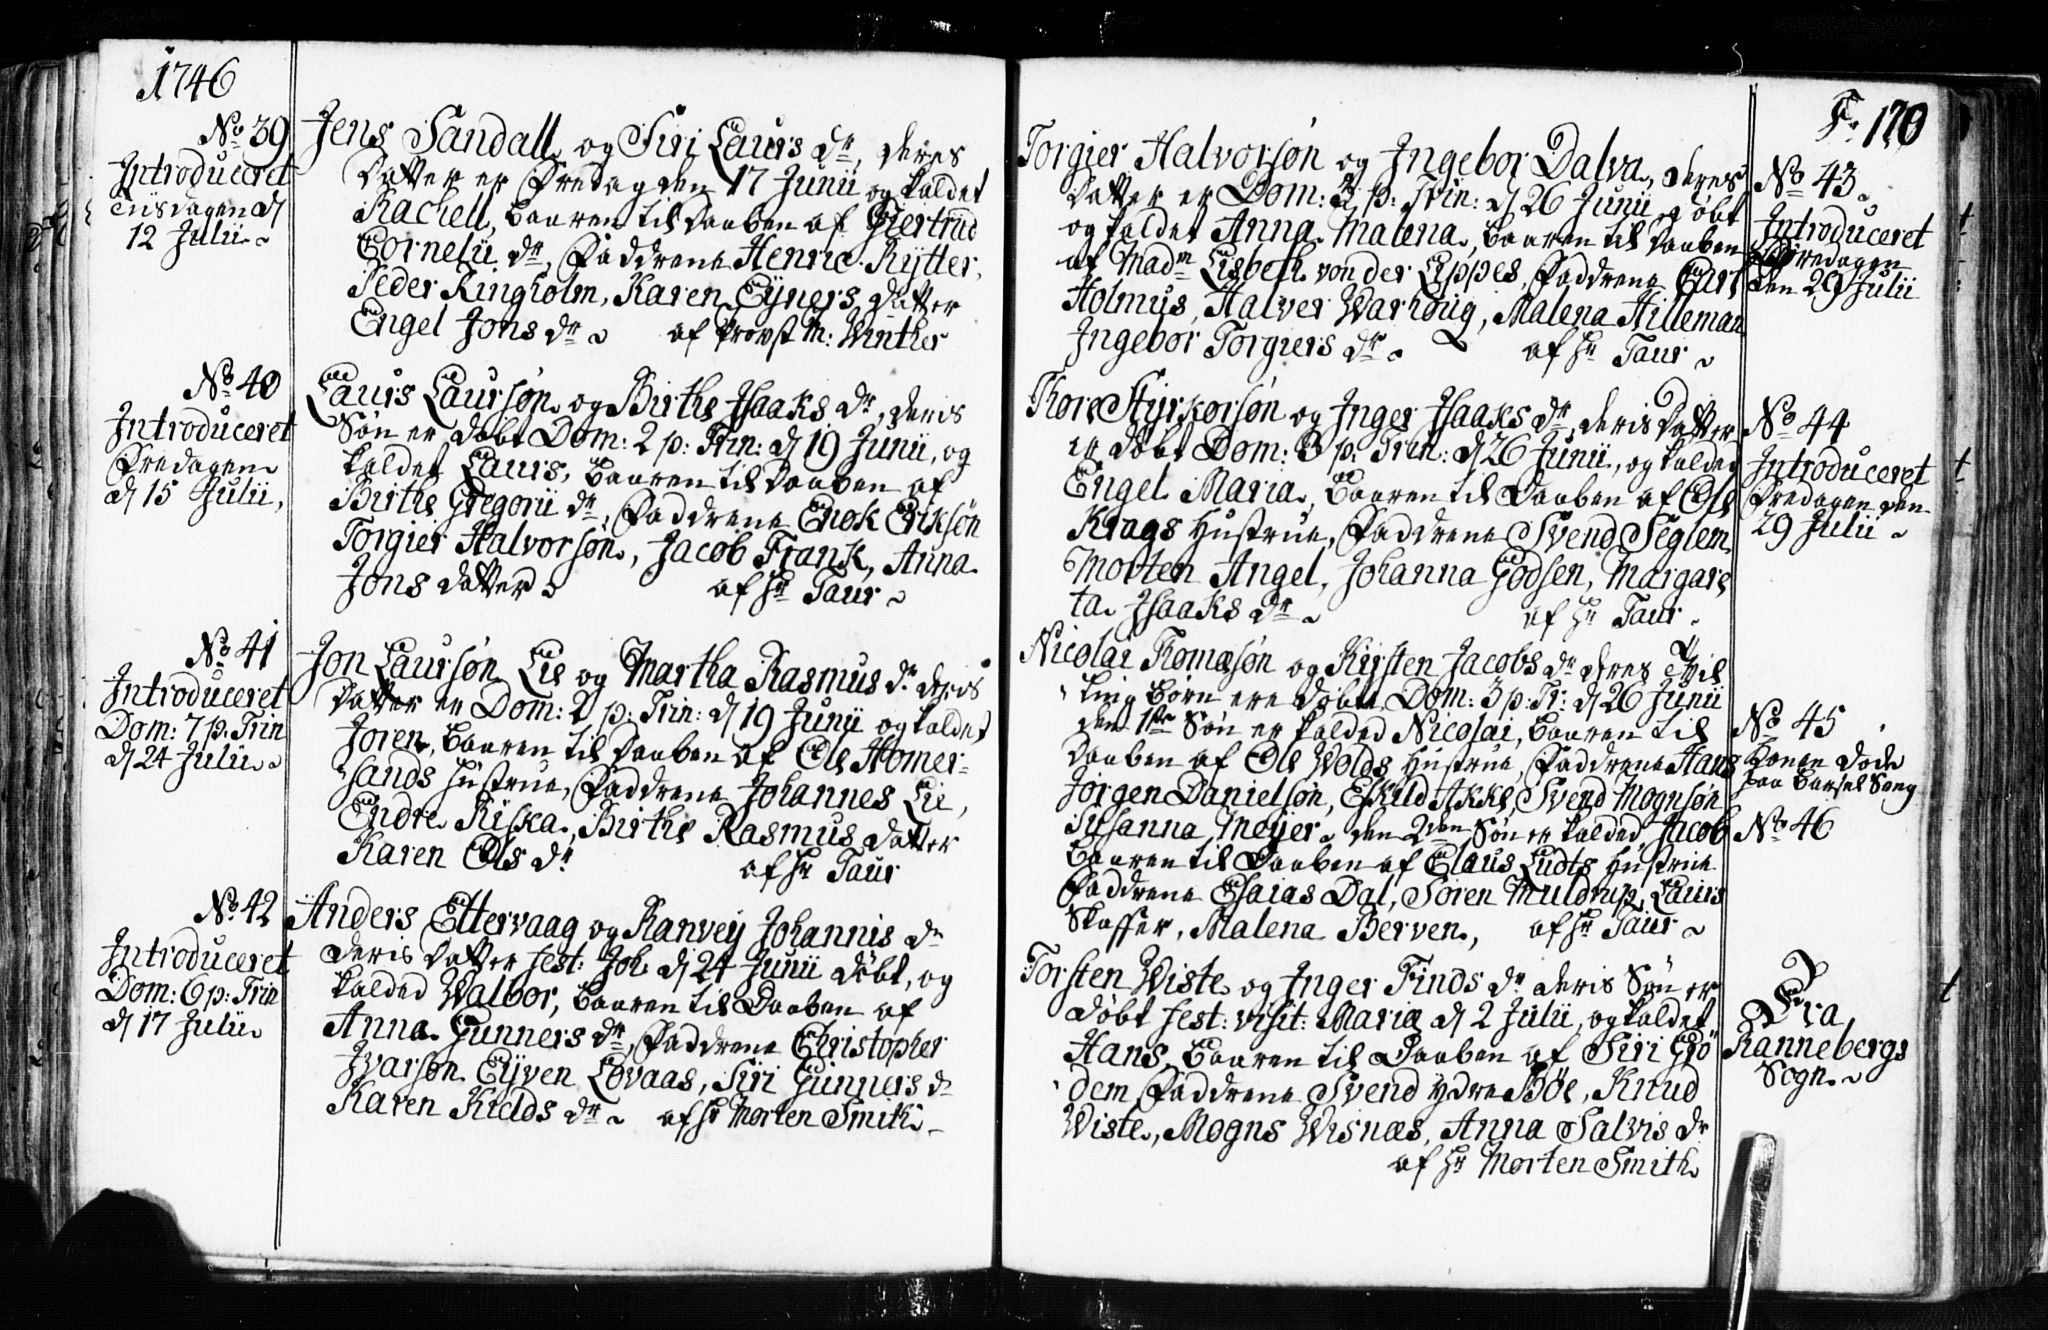 1746
No 39
Introduceret
Tisdagen d
12 Julii
Jens Sandall og Siri Laurs dr, deres
Datter er Fredag den 17 Junii og kaldet
Rachell, baaren til Daaben af Giertrud
Cornelii dr, Faddrene Henric Rytter,
Peder Ringholm, Karen Eyners datter
Engel Jons dr af Provst M: Winther
No 40
Introduceret
Fredagen
d 15 Julii,
Laurs Laursøn og Birthe Isaaks dr, deris
Søn er døbt Dom: 2 p: Trin: d 19 Junii, og
kaldet Laurs, baaren til Daaben af
Birthe Gregorii dr, Faddrene Enok Eriksøn
Torgier Halvorsøn, Jacob Frank, Anna
Jons datter af Hr Taur
No 41
Introduceret
Dom: 7 p: Trin
d 24 Julii
Jon Laursøn Lie og Martha Rasmus dr deris
Datter er Dom: 2 p: Trin: d 19 Junii og kaldet
Joren, baaren til Daaben af Ole Homer-
sands Hustrue, Faddrene Johannes Lie,
Endre Riska, Birthe Rasmus datter
Karen Ols dr af Hr Taur
No 42
Introduceret
Dom: 6 p: Trin
d 17 Julii
Anders Ettervaag og Ranveij Johannis dr
deris datter fest: Joh: d 24 Junii døbt, og
kalded Walbor, baaren til Daaben af
Anna Gunners dr, Faddrene Christopher
Ivarsøn Eyven Lovaas, Siri Gunners dr
Karen Kields dr af Hr Morten Smith
F. 170
Torgier Halvorsøn og Ingebor Dalva, deres
Datter er Dom: p: Trin: d 26 Junii døbt
og kaldet Anna Malena, baaren til Daaben
af Madm Lisbeth von der Lippes, Faddrene Curt
Holmus, Halver Warhoug, Malena Hilleman
Ingebor Torgiers dr af Hr Taur
No 43
Introduceret
Fredagen
den 29 Julii
Thore Styrkorsøn og Inger Isaaks dr, deris Datter
er døbt Dom: 3 p: Trin: d 26 Junii, og kalded
Engel Maria, baaren til Daaben af Ole
Krags Hustrue, Faddrene Svend Seglem
Morten Angel, Johanna Godsen, Margare
ta Isaaks dr af Hr Taur
No 44
Introduceret
Fredagen den
29 Julii
Nicolai Thomæsøn og Kirsten Jacobs dr deres Tvil
ling børn ere døbte Dom: 3 p: Tr: d 26 Junii
den 1ste Søn er kalded Nicolai, baaren til
Daaben af Ole Wolds Hustrue, Faddrene Hans
Jørgen Danielsøn, Eskild Akke, Svend Mognsøn
Susanna Meyer. den 2den Søn er kalded Jacob
baaren til Daaben af Claus Ludts Hustrue
Faddrene Esaias Dal, Søren Muldrup, Laurs
Skaffer, Malena Berven, af Hr Taur
No 45
Konen døde
paa Barsel Seng
No 46
Torsten Wiste og Inger Finds dr deris Søn er
døbt fest: visit: Mariæ d 2 Julii, og kaldet
Hans, baaren til Daaben af Siri Gro
dem, Faddrene Svend ydre Bøe, Knud
Wiste, Mogns Wisnæs, Anna Salvis dr
af Hr Morten Smith
Fra
Rannebergs
Sogn